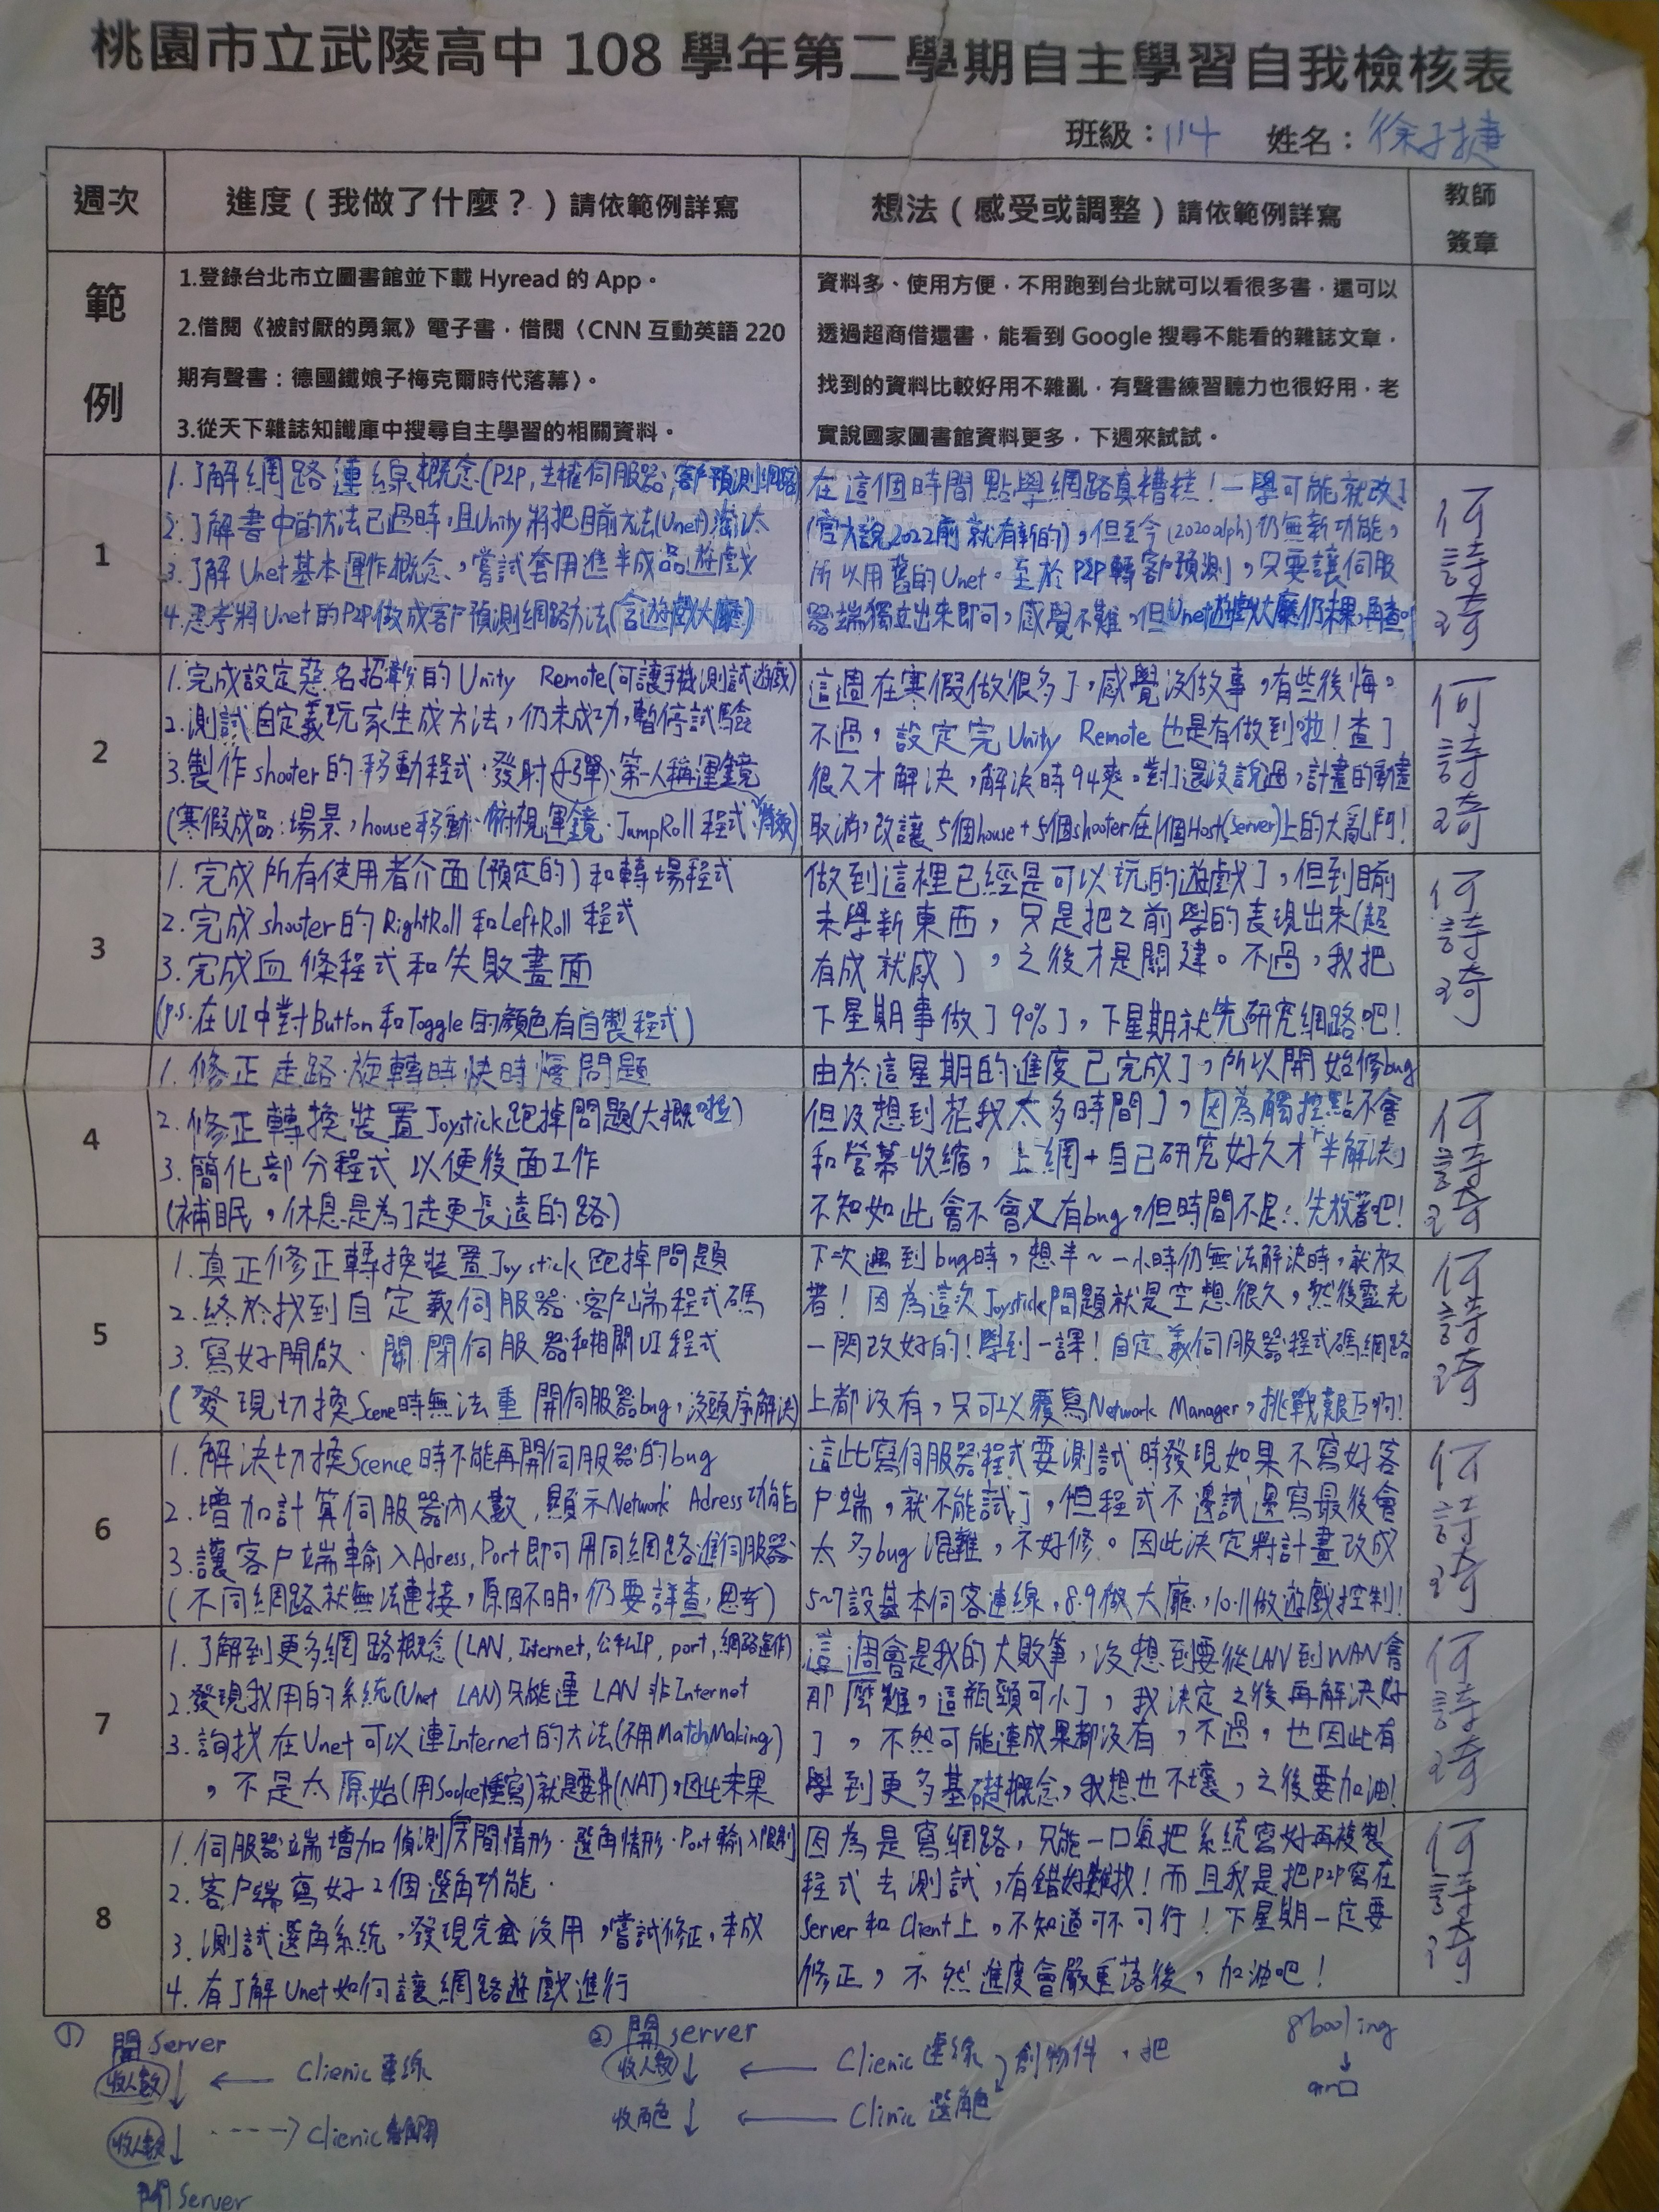 桃園市立武陵高中 108 學年第二學期自主學習自我檢核表
班級：114 姓名：徐子捷
週次 進度（我做了什麼？）請依範例詳寫 想法（感受或調整）請依範例詳寫 教師
簽章
範
例
1.登錄台北市立圖書館並下載 Hyread 的 App。
2.借閱《被討厭的勇氣》電子書，借閱〈CNN 互動英語 220
期有聲書：德國鐵娘子梅克爾時代落幕〉。
3.從天下雜誌知識庫中搜尋自主學習的相關資料。
資料多、使用方便，不用跑到台北就可以看很多書，還可以
透過超商借還書，能看到 Google 搜尋不能看的雜誌文章，
找到的資料比較好用不雜亂，有聲書練習聽力也很好用，老
實說國家圖書館資料更多，下週來試試。
1
1.了解網路連線概念(P2P,主權伺服器,客戶預測網路)
2.了解書中的方法已過時,且Unity將把目前方法(Unet)淘汰
3.了解Unet基本運作概念,嘗試套用進半成品遊戲
4.思考將Unet的P2P做成客戶預測網路方法(含遊戲大廳)
在這個時間點學網路真糟糕!一學可能就改了
(官方說2022前就有新的),但至今(2020alph)仍無新功能,
所以用舊的Unet。至於P2P轉客戶預測,只要讓伺服
器端獨立出來即可,感覺不難,但Unet遊戲大廳仍未果,再查
何詩琦
2
1.完成設定惡名招彰的Unity Remote(可讓手機測試遊戲)
2.測試自定義玩家生成方法,仍未成功,暫停試驗
3.製作shooter的移動程式·發射子彈·第一人稱運鏡
(寒假成品:場景,house移動·俯視運鏡·JumpRoll程式·特效)
這週在寒假做很多了,感覺沒做事,有些後悔。
不過,設定完Unity Remote也是有做到啦!查了
很久才解決,解決時94爽。對了還沒說過,計畫的動畫
取消,改讓5個house+5個shooter在1個Host(Server)上的大亂鬥!
何詩琦
3
1.完成所有使用者介面(預定的)和轉場程式
2.完成shooter的RightRoll和LeftRoll程式
3.完成血條程式和失敗畫面
(p.s.在UI中對Button和Toggle的顏色有自製程式)
做到這裡已經是可以玩的遊戲了,但到目前
未學新東西,只是把之前學的表現出來(超
有成就感),之後才是關建。不過,我把
下星期事做了90%了,下星期就先研究網路吧!
何詩琦
4
1.修正走路·旋轉時快時慢問題
2.修正轉換裝置Joystick跑掉問題(大概啦)
3.簡化部分程式以便後面工作
(補眠,休息是為了走更長遠的路)
由於這星期的進度已完成了,所以開始修bug
但沒想到花我太多時間了,因為觸控點不會
和螢幕收縮,上網+自己研究好久才「半解決」
不知如此會不會又有bug,但時間不足:先放著吧!
何詩琦
5
1.真正修正轉換裝置Joystick跑掉問題
2.終於找到自定義伺服器·客戶端程式碼
3.寫好開啟·關閉伺服器和相關UI程式
(發現切換Scene時無法重開伺服器bug,沒頭序解決)
下次遇到bug時,想半~一小時仍無法解決時,就放
著!因為這次Joystick問題就是空想很久,然後靈光
一閃改好的!學到一課!自定義伺服器程式碼網路
上都沒有,只可以覆寫Network Manager,挑戰艱巨啊!
何詩琦
6
1.解決切換Scence時不能再開伺服器的bug
2.增加計算伺服器內人數,顯示Network Adress功能
3.讓客戶端輸入Adress,Port即可用同網路進伺服器
(不同網路就無法連接,原因不明,仍要詳查,思考)
這此寫伺服器程式要測試時發現如果不寫好客
戶端,就不能試了,但程式不邊試邊寫最後會
太多bug混雜,不好修。因此決定將計畫改成
5~7設基本伺客連線,8.9做大廳,10.11做遊戲控制!
何詩琦
7
1.了解到更多網路概念(LAN,Internet,公私IP,port,網路運作)
2.發現我用的系統(Unet LAN)只能連LAN非Internet
3.詢找在Unet可以連Internet的方法(不用MatchMaking)
,不是太原始(用Socket重寫)就是要(NAT),因此未果
這週會是我的大敗筆,沒想到要從LAN到WAN會
那麼難,這瓶頸可小了,我決定之後再解決好
了,不然可能連成果都沒有,不過,也因此有
學到更多基礎概念,我想也不壞,之後要加油!
何詩琦
8
1.伺服器端增加偵測房間情形·選角情形·Port輸入限制
2.客戶端寫好2個選角功能.
3.測試選角系統,發現完全沒用,嘗試修正,未成
4.有了解Unet如何讓網路遊戲進行
因為是寫網路,只能一口氣把系統寫好再複製
程式去測試,有錯好難找!而且我是把P2P寫在
Server和Client上,不知道可不可行!下星期一定要
修正,不然進度會嚴重落後,加油吧!
何詩琦
① 開Server ② 開server
收人數 ← Clienic連線 收人數 ← Clienic連線 創物件,把
收人數 ----> Clienic 收角色 ← Clinic選角色
開Server